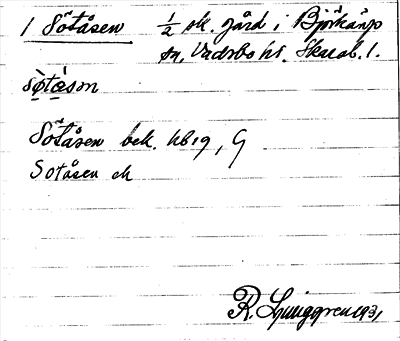 1 Sötåsen ½ sk. gård i Björkäng
sn, Vadsbo hd. Skarab. l.
sø̀tåsən
Sötåsen bek. hb 19, G
Sotåsen ck
R. Ljunggren 1931